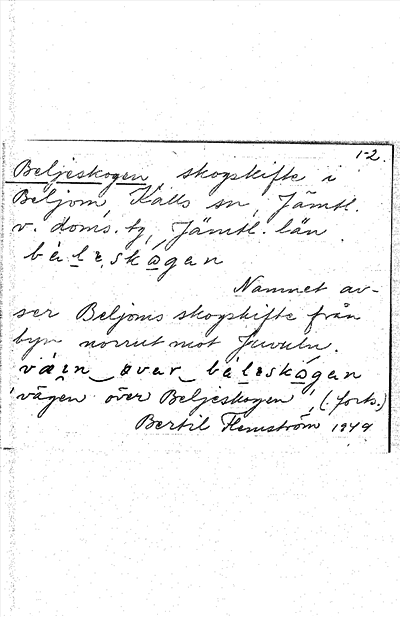 1-2.
Beljeskogen, skogskifte i
Beljom, Kalls sn, Jämtl.
v. doms. tg, Jämtl. län.
bàlɛskågan
Namnet av-
ser Beljoms skogskifte från
byn norrut mot Juvuln.
væin øvar bàlɛskågan
'vägen över Beljeskogen', (forts.)
Bertil Flemström 1949